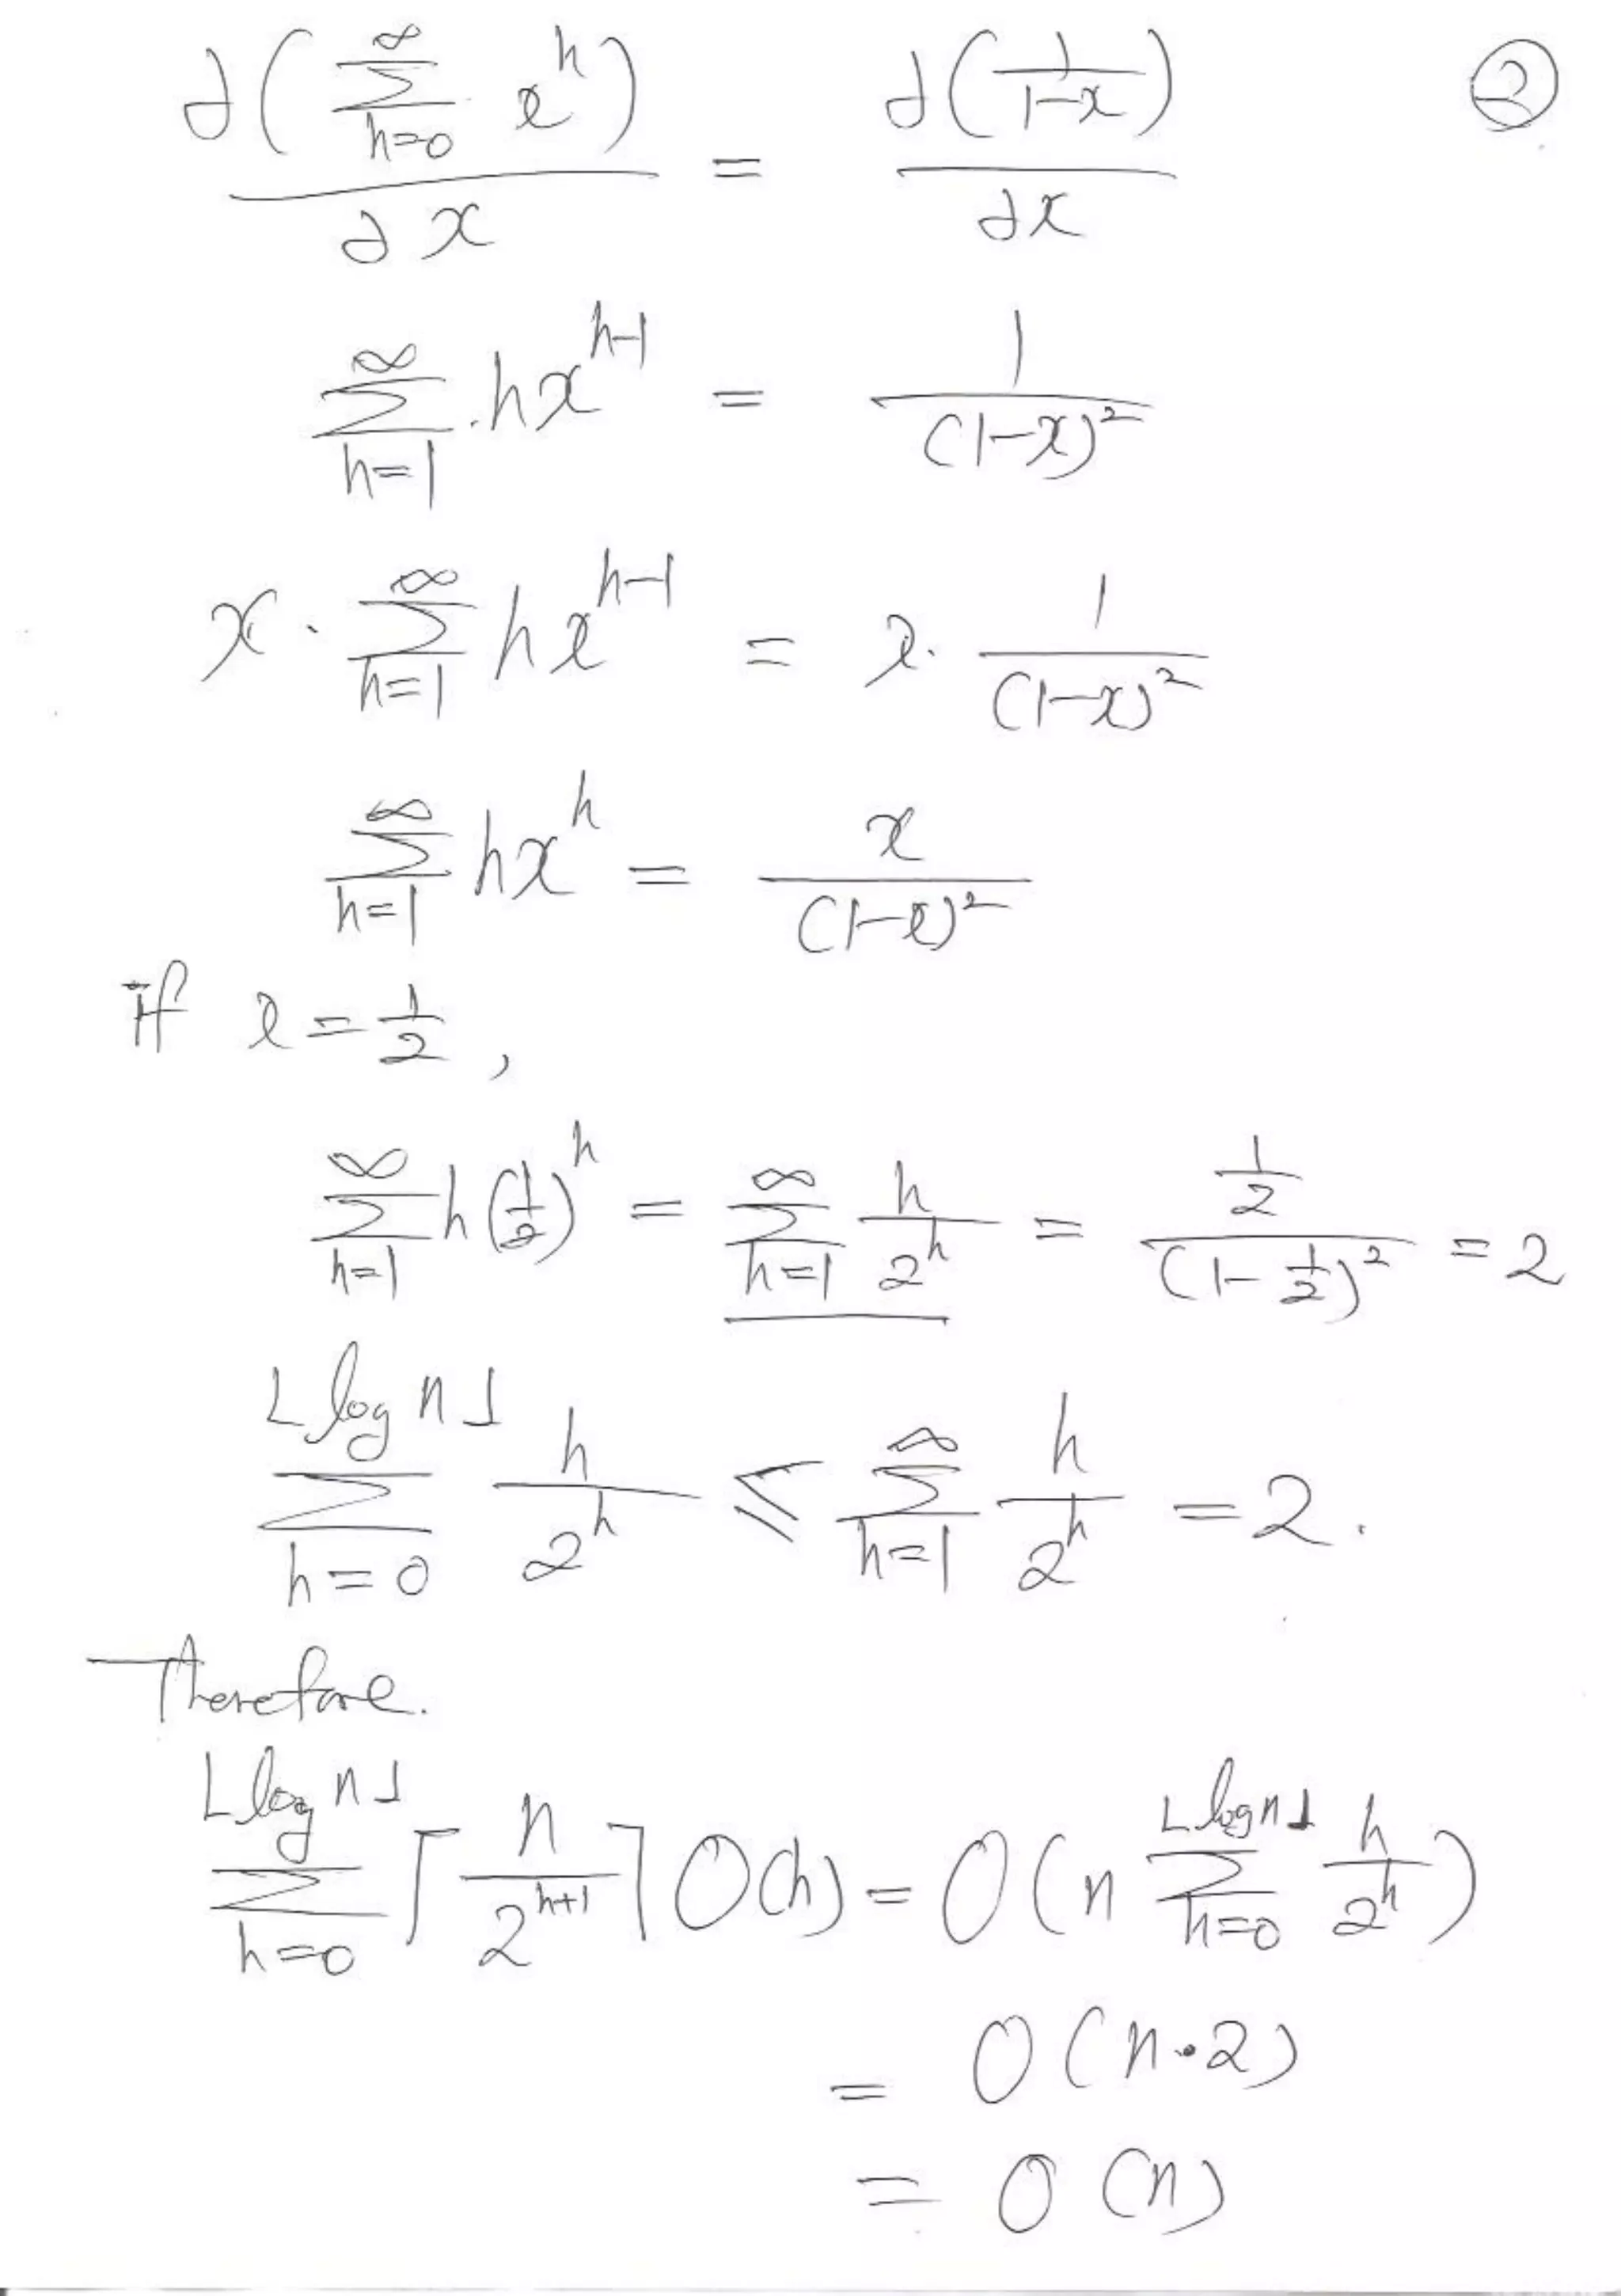 ②
∂(∑_{h=0}^{∞} x^h) / ∂x = ∂(1/(1-x)) / ∂x
∑_{h=1}^{∞} · h x^{h-1} = 1/(1-x)^2
x · ∑_{h=1}^{∞} h x^{h-1} = x · 1/(1-x)^2
∑_{h=1}^{∞} h x^h = x/(1-x)^2
If x = 1/2 ,
∑_{h=1}^{∞} h (1/2)^h = ∑_{h=1}^{∞} h/2^h = (1/2)/(1-1/2)^2 = 2
∑_{h=0}^{⌊log n⌋} h/2^h ≤ ∑_{h=1}^{∞} h/2^h = 2.
Therefore.
∑_{h=0}^{⌊log n⌋} ⌈n/2^{h+1}⌉ O(h) = O(n ∑_{h=0}^{⌊log n⌋} h/2^h)
= O(n·2)
= O(n)